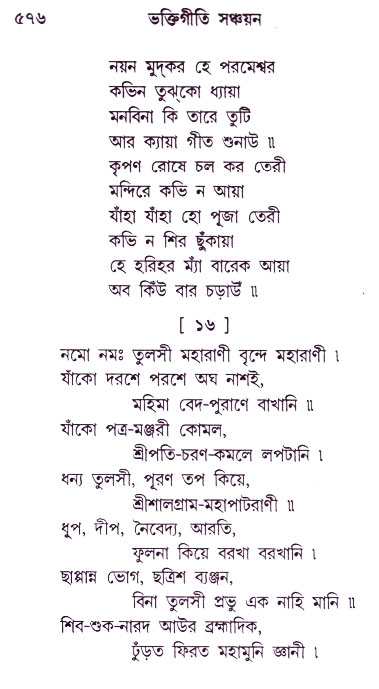 ৫৭৬ ভক্তিগীতি সঞ্চয়ন
নয়ন মুদ্‌কর হে পরমেশ্বর
কভিন তুঝ্‌কো ধ্যায়া
মনবিনা কি তারে তুটি
আর ক্যায়া গীত শুনাউ ॥
কৃপণ রোষে চল কর তেরী
মন্দিরে কভি ন আয়া
যাঁহা যাঁহা হো পূজা তেরী
কভি ন শির ছুঁকায়া
হে হরিহর ম্যাঁ বারেক আয়া
অব কিঁউ বার চড়াউঁ ॥
[ ১৬ ]
নমো নমঃ তুলসী মহারাণী বৃন্দে মহারাণী ।
যাঁকো দরশে পরশে অঘ নাশই,
মহিমা বেদ-পুরাণে বাখানি ॥
যাঁকো পত্র-মঞ্জরী কোমল,
শ্রীপতি-চরণ-কমলে লপটানি ।
ধন্য তুলসী, পূরণ তপ কিয়ে,
শ্রীশালগ্রাম-মহাপাটরাণী ॥
ধূপ, দীপ, নৈবেদ্য, আরতি,
ফুলনা কিয়ে বরখা বরখানি ।
ছাপ্পান্ন ভোগ, ছত্রিশ ব্যঞ্জন,
বিনা তুলসী প্রভু এক নাহি মানি ॥
শিব-শুক-নারদ আউর ব্রহ্মাদিক,
ঢুঁড়ত ফিরত মহামুনি জ্ঞানী ।